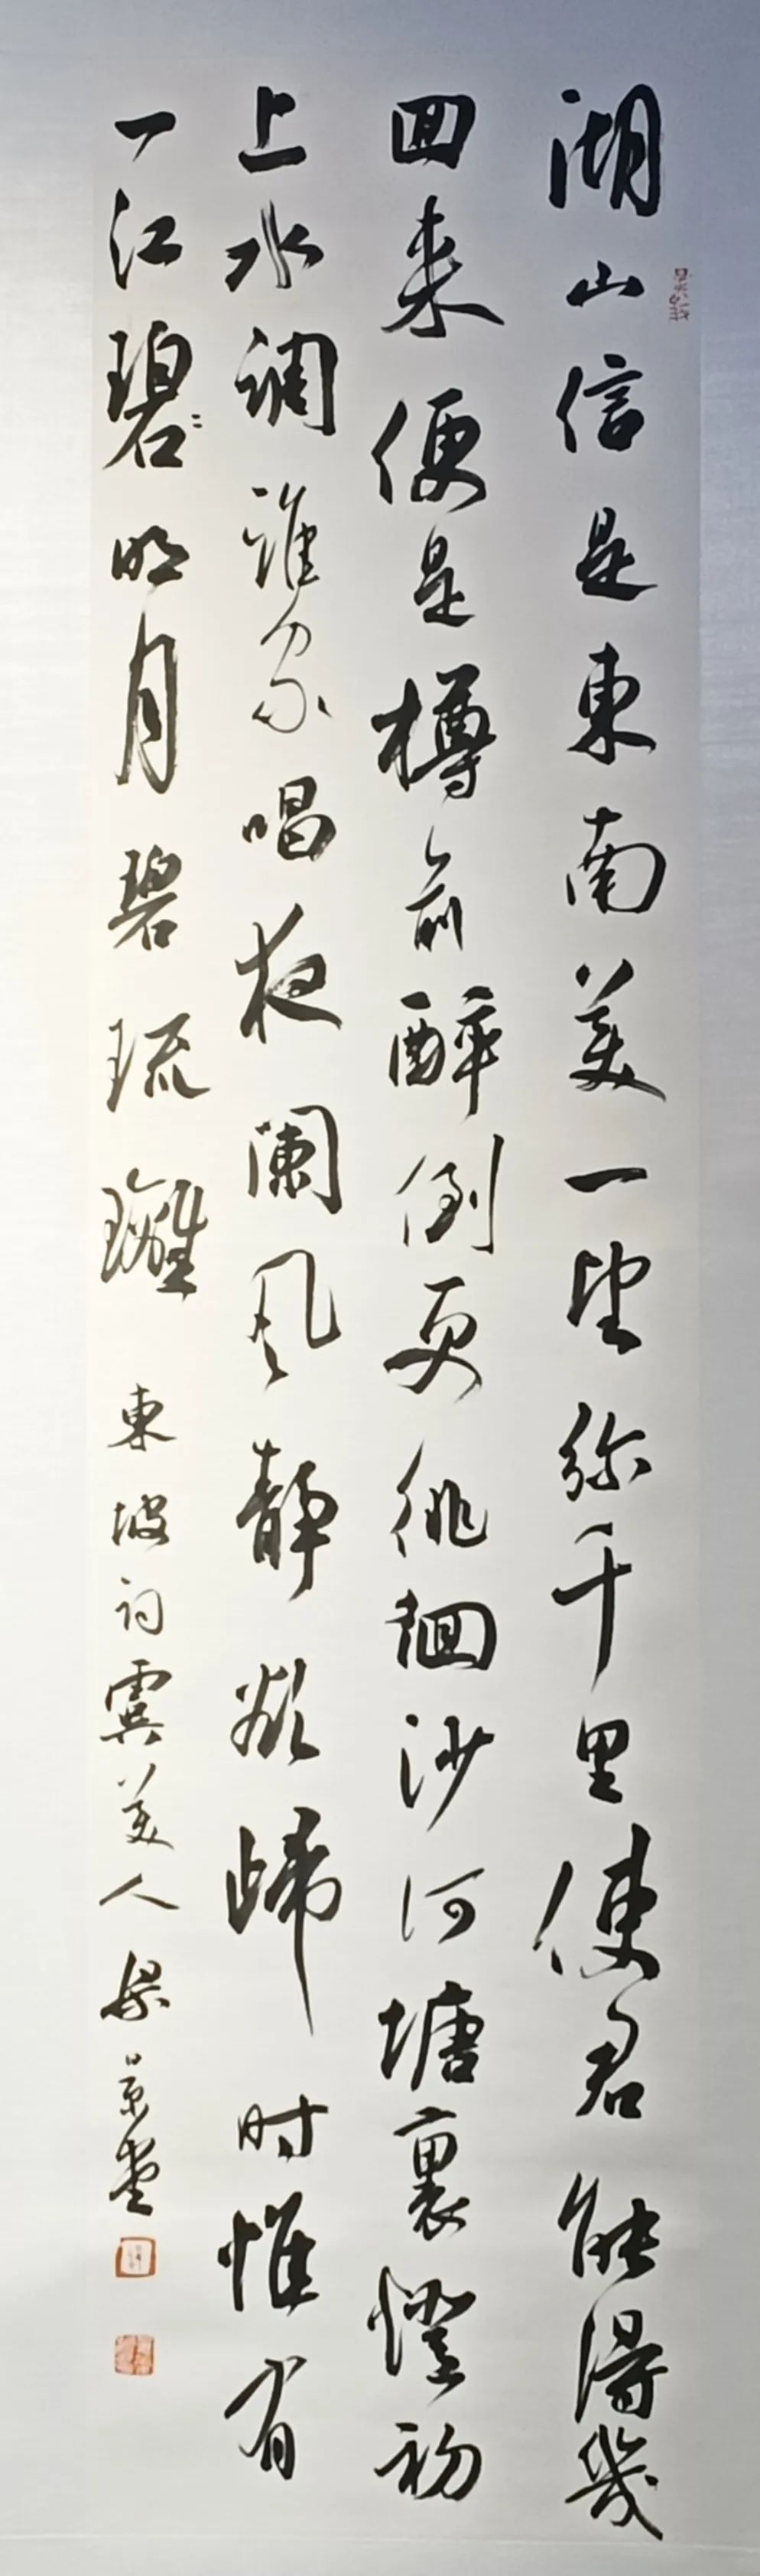 湖山信是東南美一望弥千里使君能得幾
囬来便是樽前醉倒更徘徊沙河塘裏燈初
上水調誰家唱夜闌风静欲歸时惟有
一江碧明月碧琉璃 東坡词虞美人